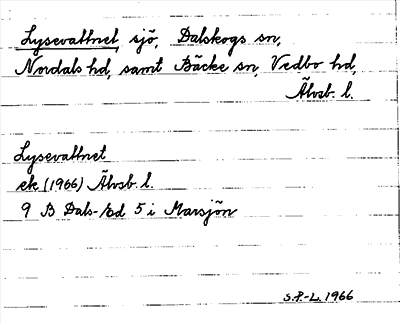 Lysevattnet, sjö, Dalskogs sn,
Nordals hd, samt Bäcke sn, Vedbo hd,
Älvsb. l.
Lysevattnet
ek (1966) Älvsb. l.
9 B Dals-Ed 5 i Marsjön
S.P.-L. 1966